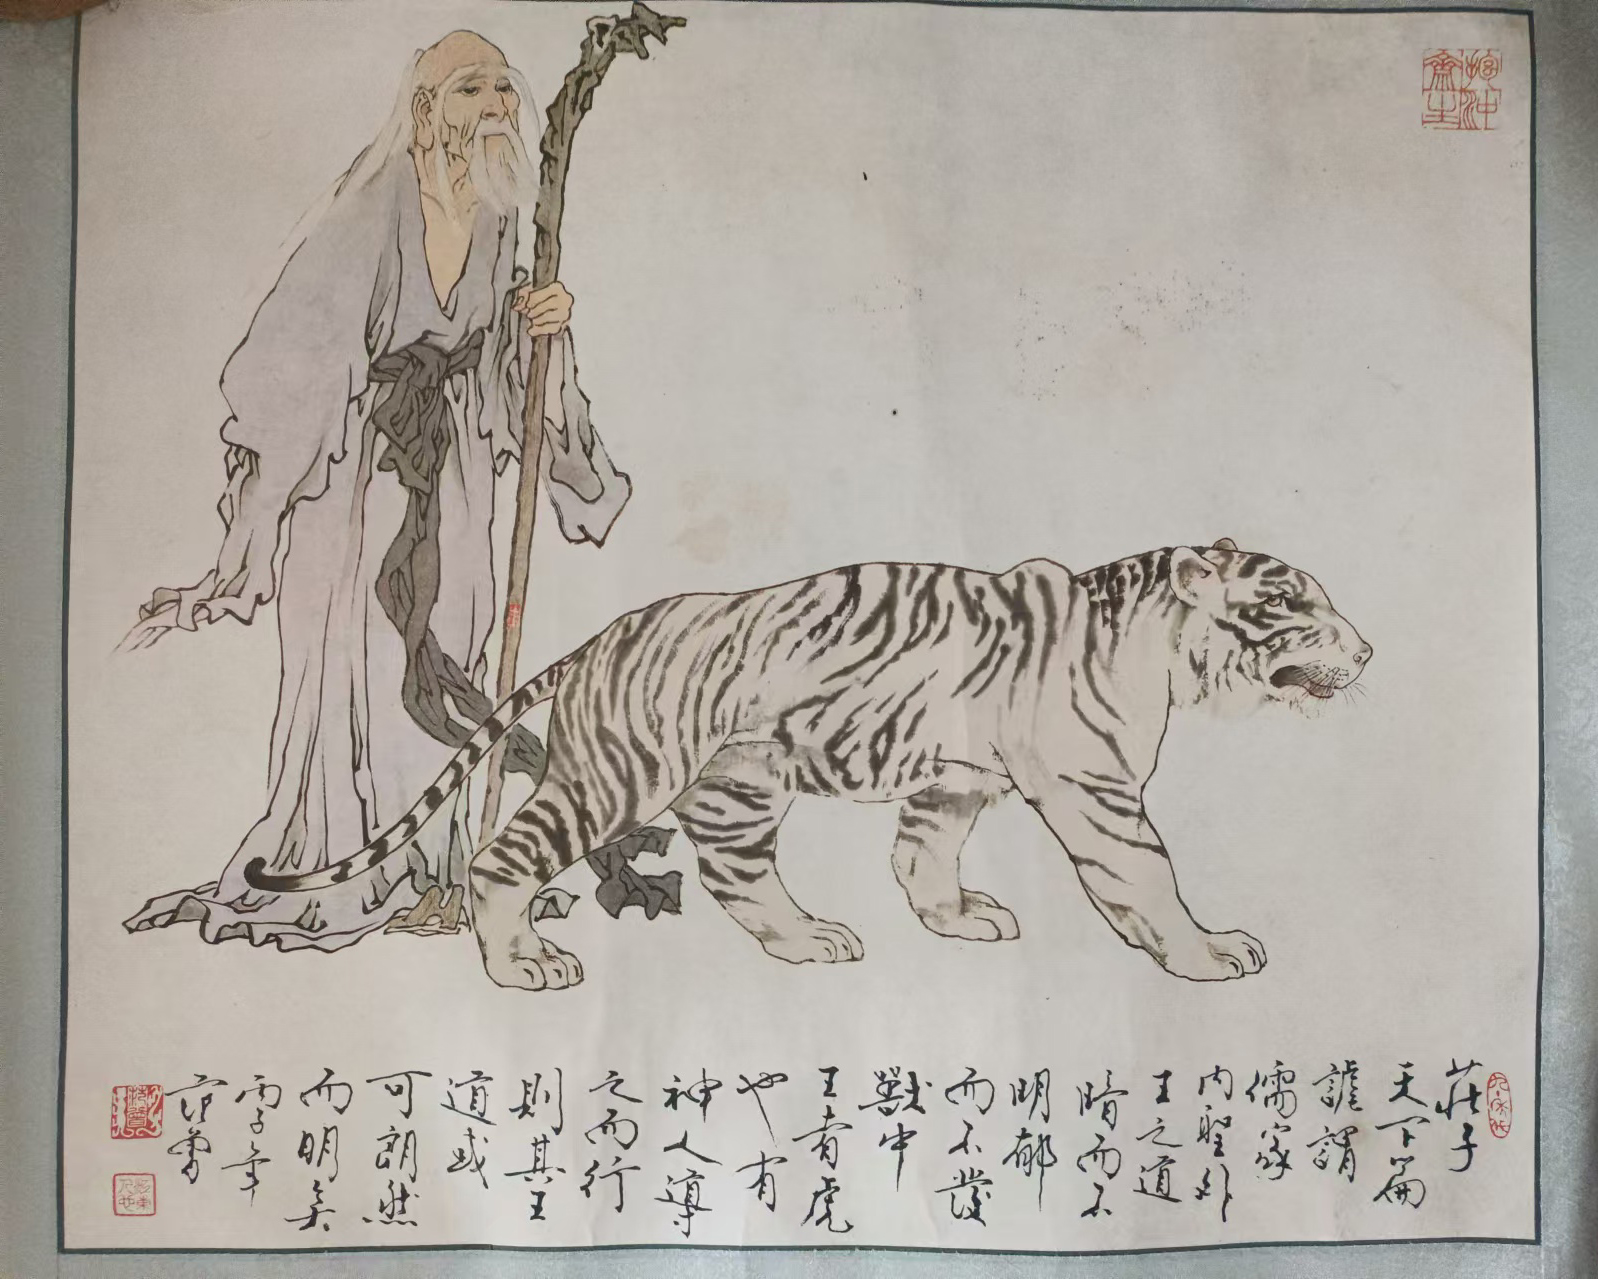 莊子
天下篇
謔謂
儒家
内聖外
王之道
暗而不
明郁
而不發
獸中
王者虎
也有
神人導
之而行
則其王
道或
可朗然
而明矣
丙子年
范曾
抱沖
齋主